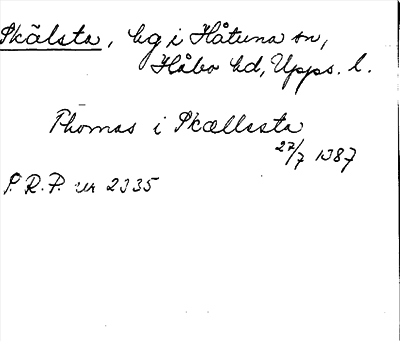 Skälsta, hg i Håtuna sn,
Håbo hd, Upps. l.
Thomas i Skællssta
27/7 1387
P.R.P. nr 2335